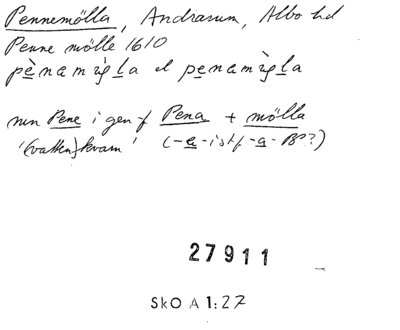 Pennemölla, Andrarum, Albo hd
Penne mölle 1610
pènamǫ̀la el penamǫ̀la
mn Pene i gen f Pena + mölla
'(vatten)kvarn' (-e- ist f -a- B?)
27911
SkO A 1:27